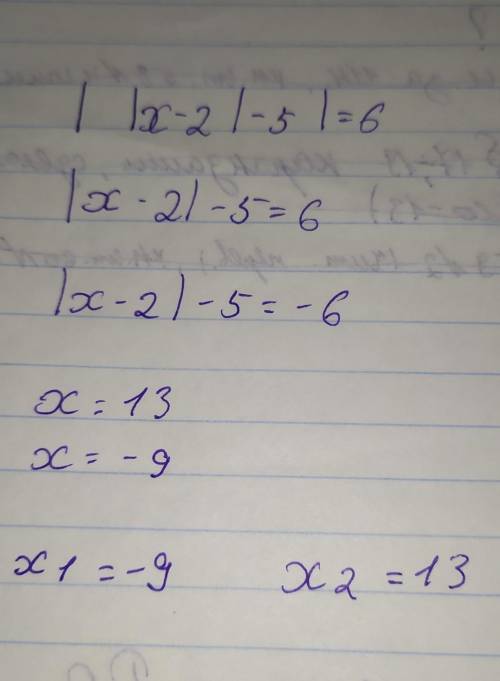 | |x-2|-5|=6
|x-2|-5=6
|x-2|-5=-6
x=13
x=-9
x1=-9 x2=13